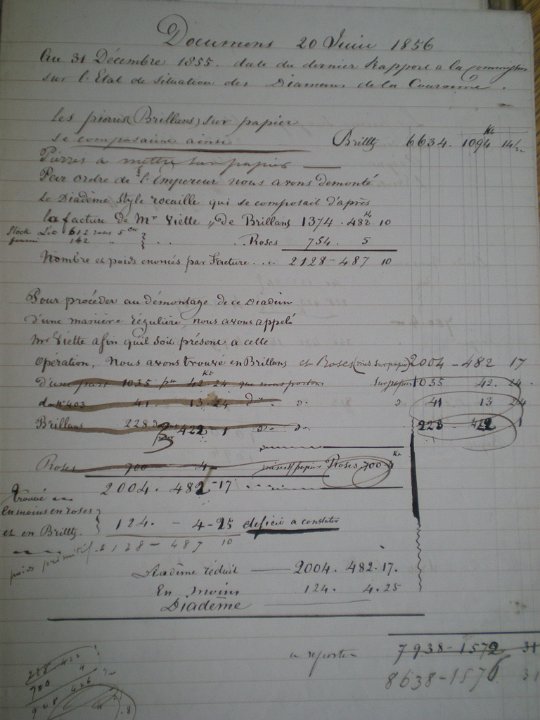 Documens 20 Juin 1856
Au 31 Décembre 1855. date du dernier Rapport a la
sur l'Etat de situation des Diamans de la Couronne.
Les pierres (Brillans) sur papier
se composaient ainsi Brillts 6634. 1094 14
Pierres a mettre sur papier
Par ordre de l'Empereur nous avons demonté
Le Diadême Style rocaille qui se composait d'après
la facture de Mr Viette, de Brillans 1374. 482 10
Roses 754. 5
Nombre et poids enoncés par Facture... 2128 - 487 10
Pour procéder au démontage de ce Diadem
d'une manière régulière, nous avons appelé
Mr Viette afin qu'il soit présent à cette
opération, Nous avons trouvé en Brillans et Roses 2004 - 482 17
d'une part 1035 42 24 1035 42. 24
41 13 24 41 13 24
Brillans 228 422 1 228 422 1
Roses 700 4 Roses 700 4
2004. 482 - 17
trouvé
en moins en roses
et en Brillts 124. - 4 - 25 deficit a constater
2128 - 487 10
Diadême réduit — 2004. 482. 17.
En moins 124. 4. 25
Diadême
a reporter 7938 - 1572 31
8638 - 1576 31